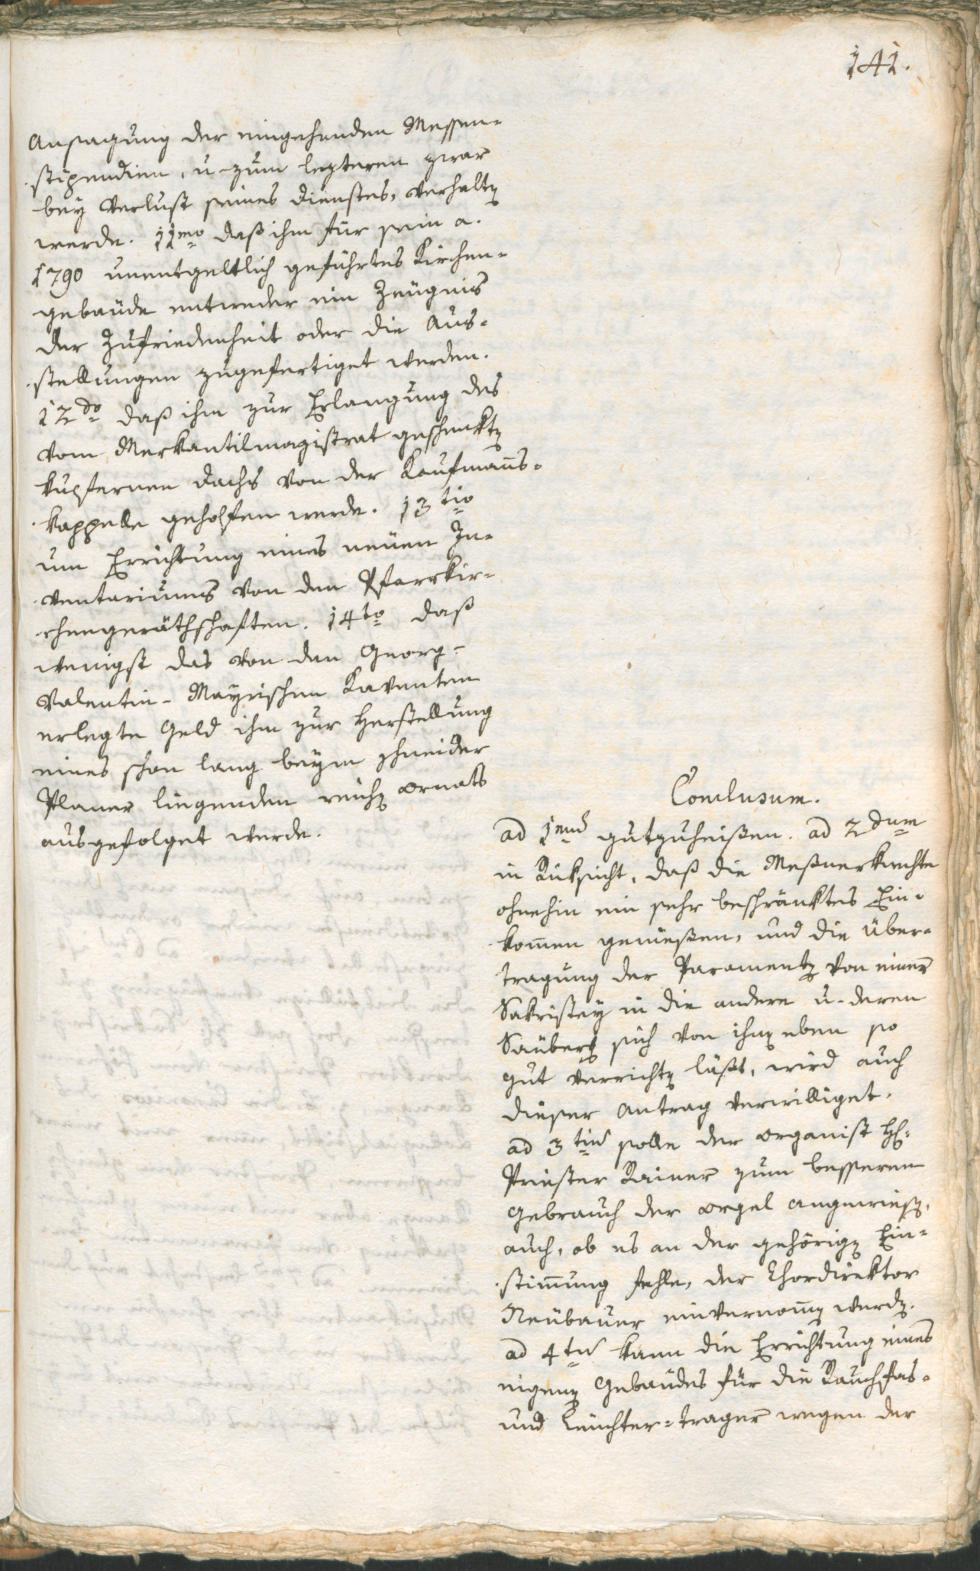 141.
Ansagung der eingehenden Messen-
stipendien, u. zum lezteren zwar
bey Verlust seines Dienstes, verhaltē
werde. 11mo daß ihm für sein a.
1790 unentgeltlich geführtes Kirchen-
gebäude entweder ein Zeügnis
der Zufriedenheit oder die Aus-
stellungen zugefertiget werden.
12do daß ihm zur Erlangung des
vom Merkantilmagistrat geschenktē
kupfernen Dachs von der Kaufmañs-
kappelle geholfen werde. 13tio
um Errichtung eines neuen In-
ventariums von den Pfarrkir-
chengeräthschaften. 14to daß
wenigst das von den Georg-
Valentin-Mayrischen Kaventen
erlegte Geld ihm zur Herstellung
eines schon lang beym Schneider
Planer liegenden reichē Ornats
ausgefolget werde.
Conclusum.
ad 1mũ gutzuheißen. ad 2dum
in Rüksicht, daß die Meßnerknechte
ohnehin ein sehr beschränktes Ein-
kom̃en genießen, und die Über-
tragung der Paramentē von einer
Sakristey in die andere u. deren
Säuberg sich von ihnē eben so
gut verrichtē läßt, wird auch
dieser Antrag verwilliget.
ad 3tiũ solle der Organist H.
Priester Rainer zum besseren
Gebrauch der Orgel angewiesē,
auch, ob es an der gehörigē Ein-
stim̃ung fehle, der Chordirektor
Neubauer einvernom̃ē werdē.
ad 4tũ kann die Errichtung eines
eigenē Gebäudes für die Rauchfas-
und Leuchter-trager wegen der